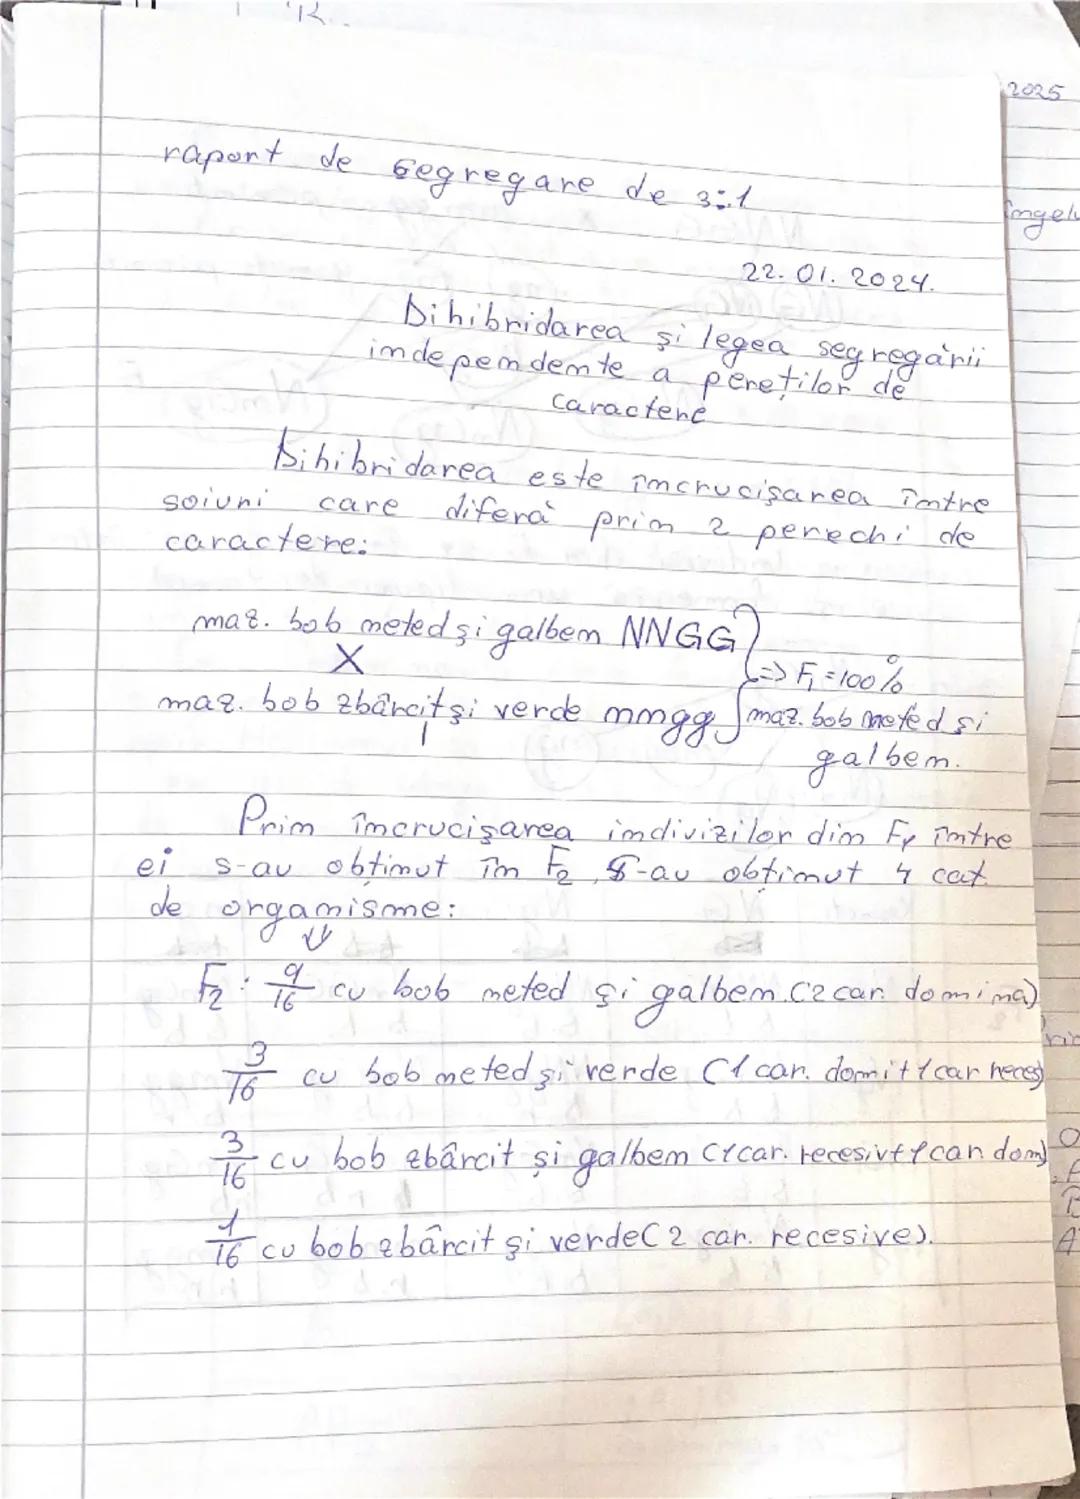 2025
raport de segregare de 3:1
22.01.2024.
Dihibridarea și legea segregării
independente a pereților de
caractere
Dihibridarea este încrucișarea între
soiuri care diferă prin 2 perechi de
caractere:
maz. bob neted și galbem NNGG
X
=> F₁ = 100%
maz. bob zbârcit și verde nngg
maz. bob neted și
galben.
Prin încrucișarea indivizilor din F₁ între
ei s-au obținut în F₂ S-au obținut 4 cat.
de organisme:
F₂: 9/16 cu bob neted și galbem (2 car. domina)
3/16 cu bob neted și verde (1 car. domi+1 car reces)
3/16 cu bob zbârcit și galbem (1 car. recesiv+1 car dom)
1/16 cu bob zbârcit și verde (2 car. recesive).